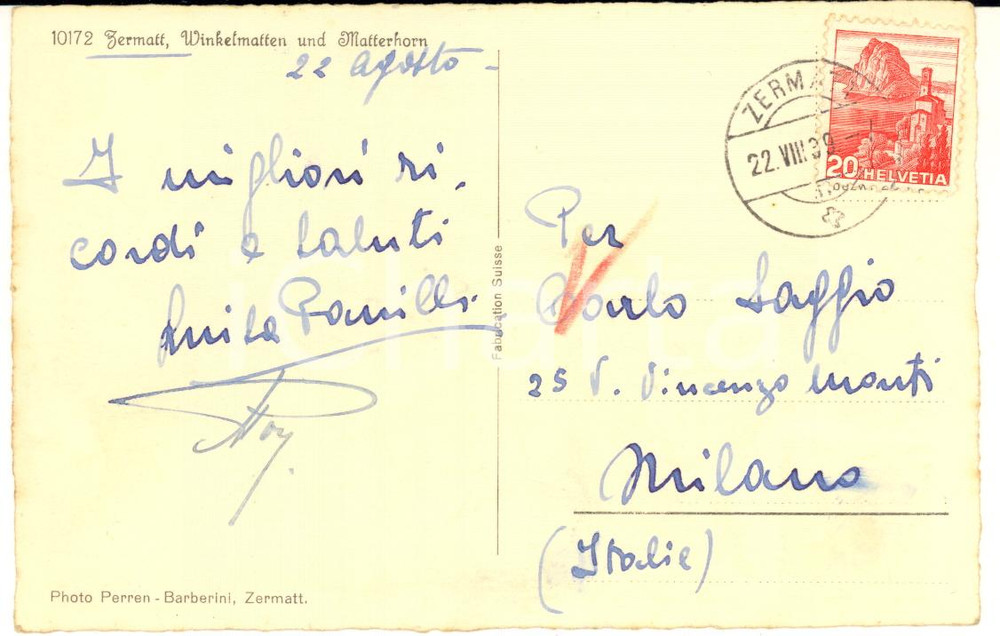 10172 Zermatt, Winkelmatten und Matterhorn
22 agosto -
I migliori ri.
cordi e saluti
Luisa
Fabrication Suisse
Per
Carlo Saggio
25 V. Vincenzo Monti
Milano
(Italie)
ZERMATT
22.VIII.39
20 HELVETIA
Photo Perren - Barberini, Zermatt.